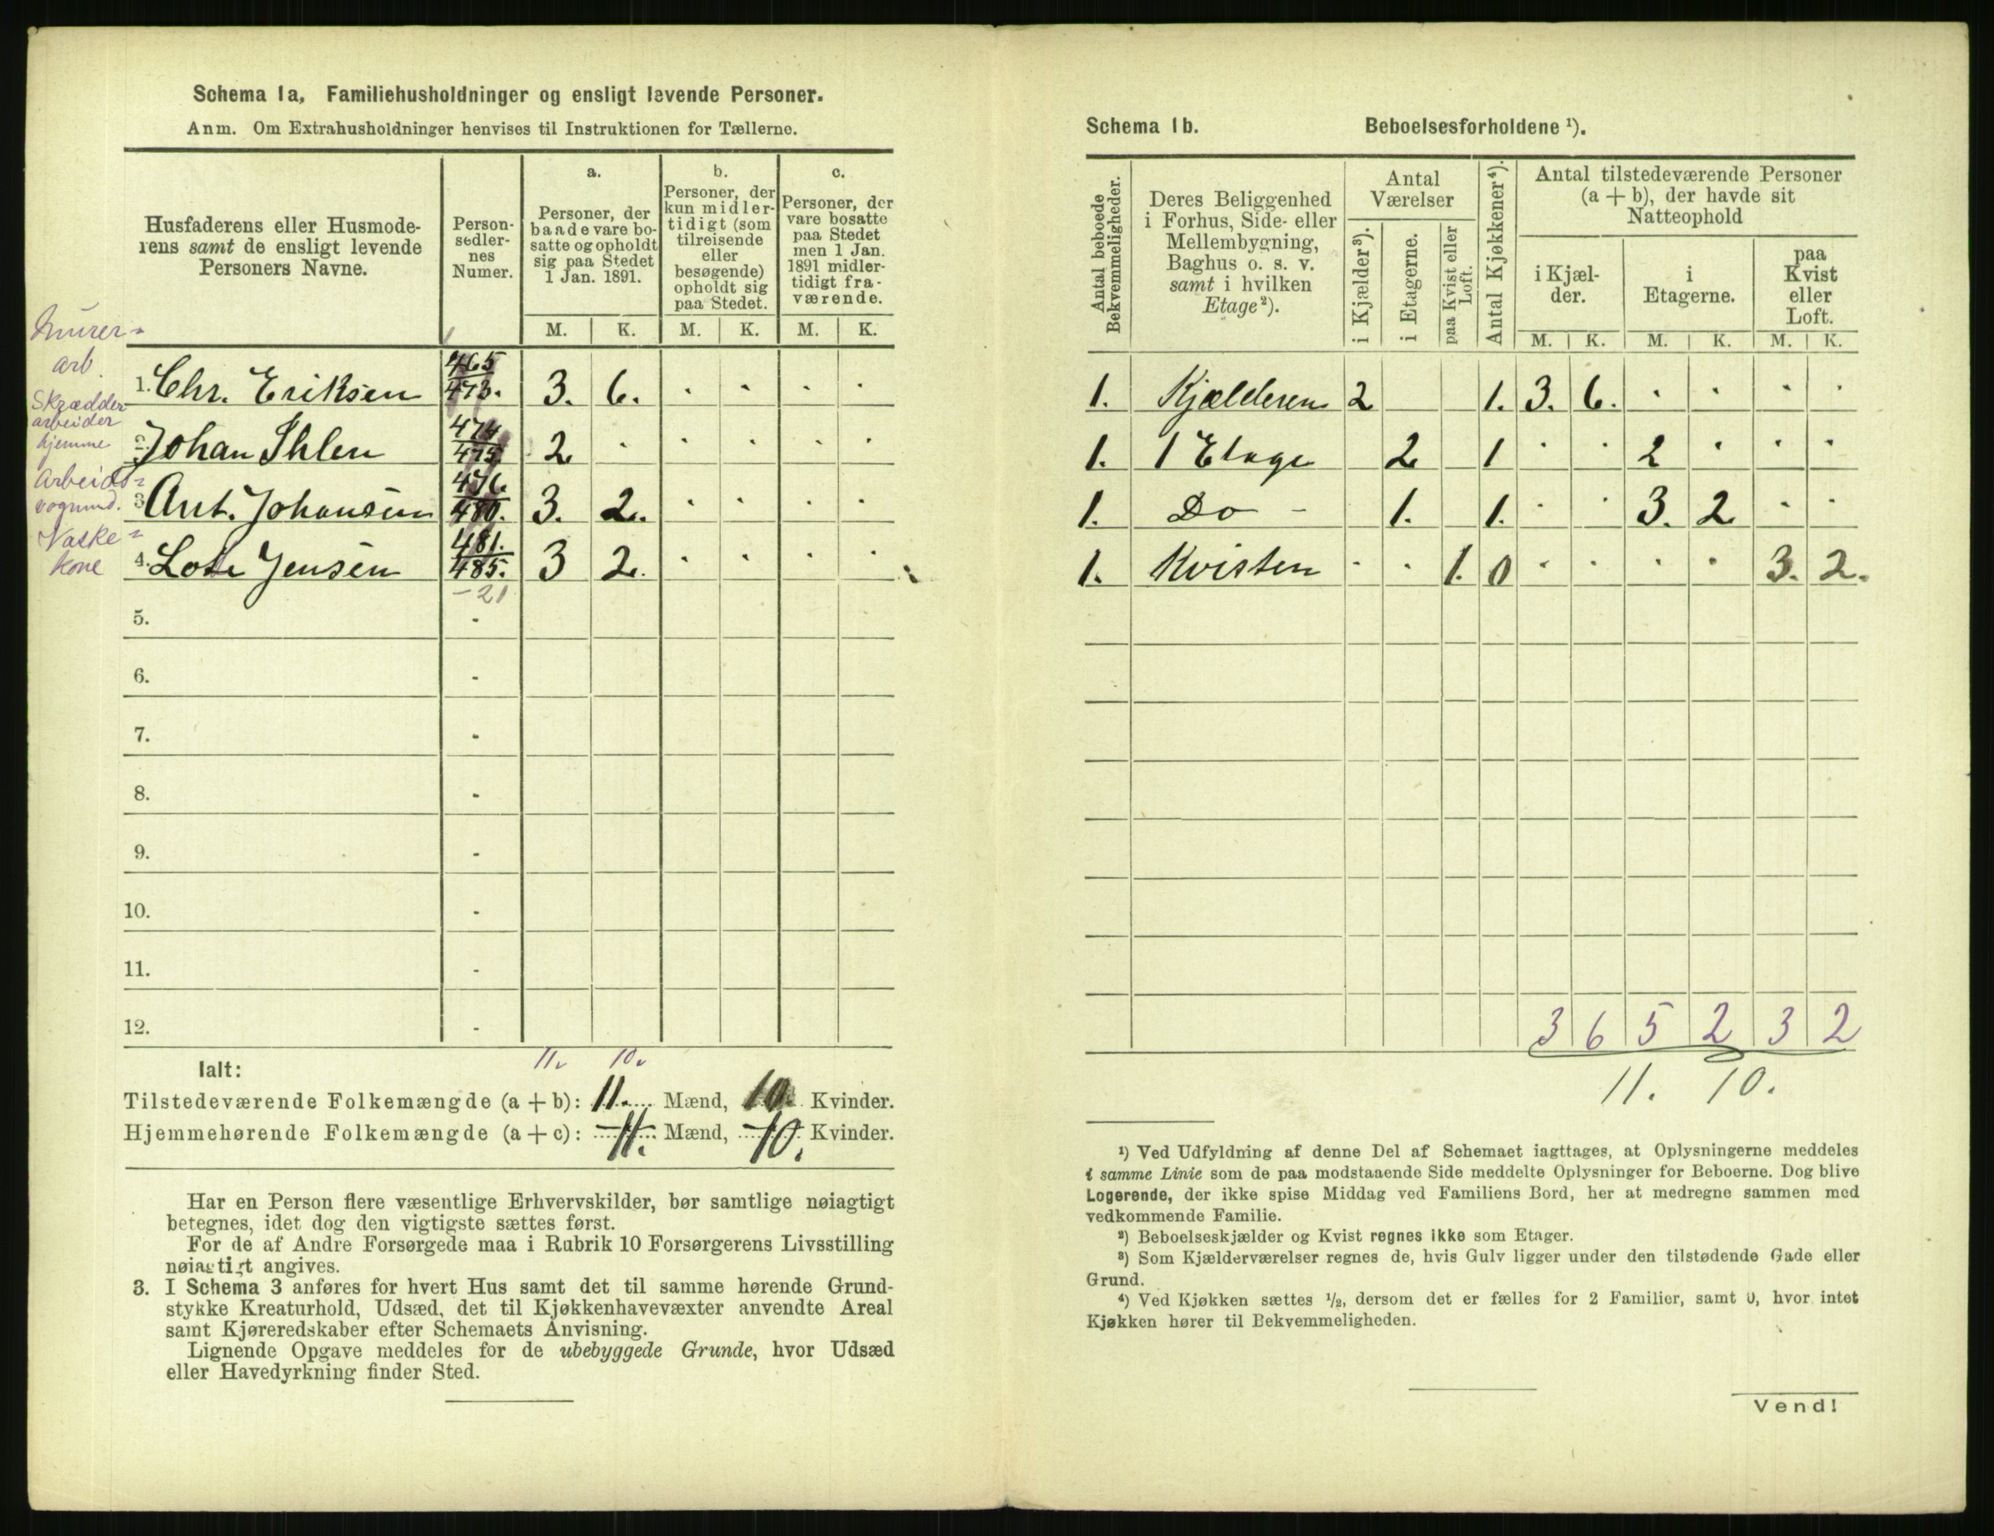 Schema 1a, Familiehusholdninger og ensligt levende Personer.
Anm. Om Extrahusholdninger henvises til Instruktionen for Tællerne.
Husfaderens eller Husmoderens samt de ensligt levende Personers Navne.
Personsedlernes Numer.
a. Personer, der baade vare bosatte og opholdt sig paa Stedet 1 Jan. 1891.
b. Personer, der kun midlertidigt (som tilreisende eller besøgende) opholdt sig paa Stedet.
c. Personer, der vare bosatte paa Stedet men 1 Jan. 1891 midlertidigt fraværende.
M. K. M. K. M. K.
Murerarb. 1. Chr. Eriksen 465/473. 3. 6. . . . .
Skrædder arbeider hjemme 2. Johan Ihlen 474/475. 2 . . . . .
Arbeids= vognmd. 3 Ant. Johansen 476./480. 3. 2. . . . .
Vaske= kone 4. Lote Jensen 481./485. 3 2. . . . .
- 21
5. -
6. -
7. -
8. -
9. -
10. -
11. -
12. -
Ialt: 11. 10.
Tilstedeværende Folkemængde (a + b): 11. Mænd, 10. Kvinder.
Hjemmehørende Folkemængde (a + c): 11. Mænd, 10. Kvinder.
Har en Person flere væsentlige Erhvervskilder, bør samtlige nøiagtigt
betegnes, idet dog den vigtigste sættes først.
For de af Andre Forsørgede maa i Rubrik 10 Forsørgerens Livsstilling
nøiagtigt angives.
3. I Schema 3 anføres for hvert Hus samt det til samme hørende Grund-
stykke Kreaturhold, Udsæd, det til Kjøkkenhavevæxter anvendte Areal
samt Kjøreredskaber efter Schemaets Anvisning.
Lignende Opgave meddeles for de ubebyggede Grunde, hvor Udsæd
eller Havedyrkning finder Sted.
Schema 1b. Beboelsesforholdene ¹).
Antal beboede Bekvemmeligheder.
Deres Beliggenhed i Forhus, Side- eller Mellembygning, Baghus o. s. v. samt i hvilken Etage²).
Antal Værelser
i Kjælder³).
i Etagerne.
paa Kvist eller Loft.
Antal Kjøkkener⁴).
Antal tilstedeværende Personer (a + b), der havde sit Natteophold
i Kjælder.
i Etagerne.
paa Kvist eller Loft.
M. K. M. K. M. K.
1. Kjælderen 2 1. 3. 6. . . . .
1. 1 Etage 2 1 . . 2 . . .
1. Do - 1. 1. . . 3. 2 . .
1. Kvisten . . 1. 0 . . . . 3. 2.
3 6 5 2 3 2
11. 10.
¹) Ved Udfyldning af denne Del af Schemaet iagttages, at Oplysningerne meddeles
i samme Linie som de paa modstaaende Side meddelte Oplysninger for Beboerne. Dog blive
Logerende, der ikke spise Middag ved Familiens Bord, her at medregne sammen med
vedkommende Familie.
²) Beboelseskjælder og Kvist regnes ikke som Etager.
³) Som Kjælderværelser regnes de, hvis Gulv ligger under den tilstødende Gade eller
Grund.
⁴) Ved Kjøkken sættes ½, dersom det er fælles for 2 Familier, samt 0, hvor intet
Kjøkken hører til Bekvemmeligheden.
Vend!